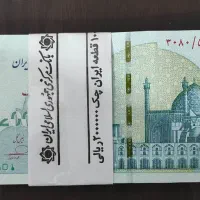 ۳۰۸۰/۵
۱۰ قطعه ایران چک ۲۰۰۰۰۰۰ ریالی
بانک مرکزی جمهوری اسلامی ایران